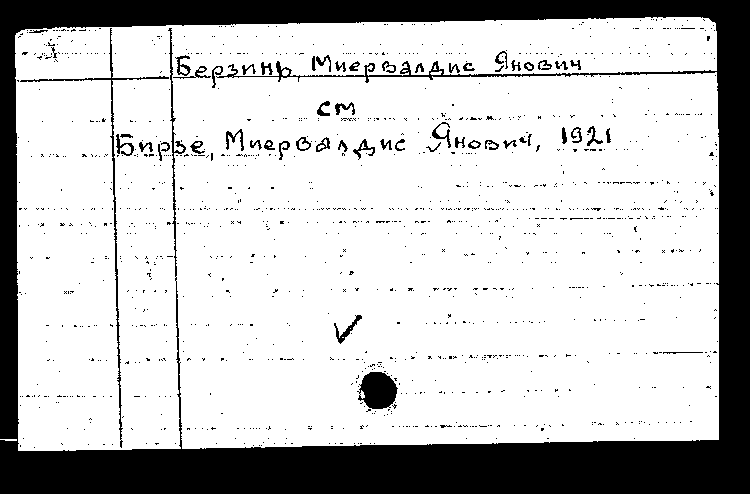 Берзинь, Миервалдис Янович
см
Бирзе, Миервалдис Янович, 1921